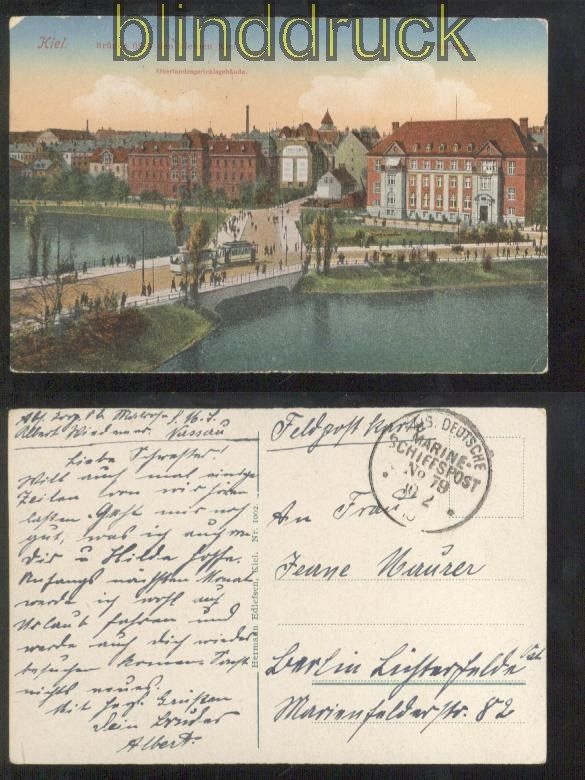 blinddruck
Kiel.
Brücke über den Kleinen Kiel
Oberlandesgerichtsgebäude.
Albert Wiedmann. Nassau
Liebe Schwester!
Will auch mal einige
Zeilen von mir hören
lassen. Geht mir noch
gut, was ich auch von
dir u Hilde hoffe.
Anfangs nächsten Monat
werde ich wohl auf
Urlaub fahren und
werde auch dich wieder
besuchen kommen. Sonst
nichts neues.
Mit herzl. Grüßen
Dein Bruder
Albert.
Hermann Edlefsen, Kiel. Nr. 1002.
Feldpost Karte
KAIS. DEUTSCHE
MARINE-
SCHIFFSPOST
No 79
An Frau
Jenne Maurer
Berlin Lichterfelde
Marienfelderstr. 82